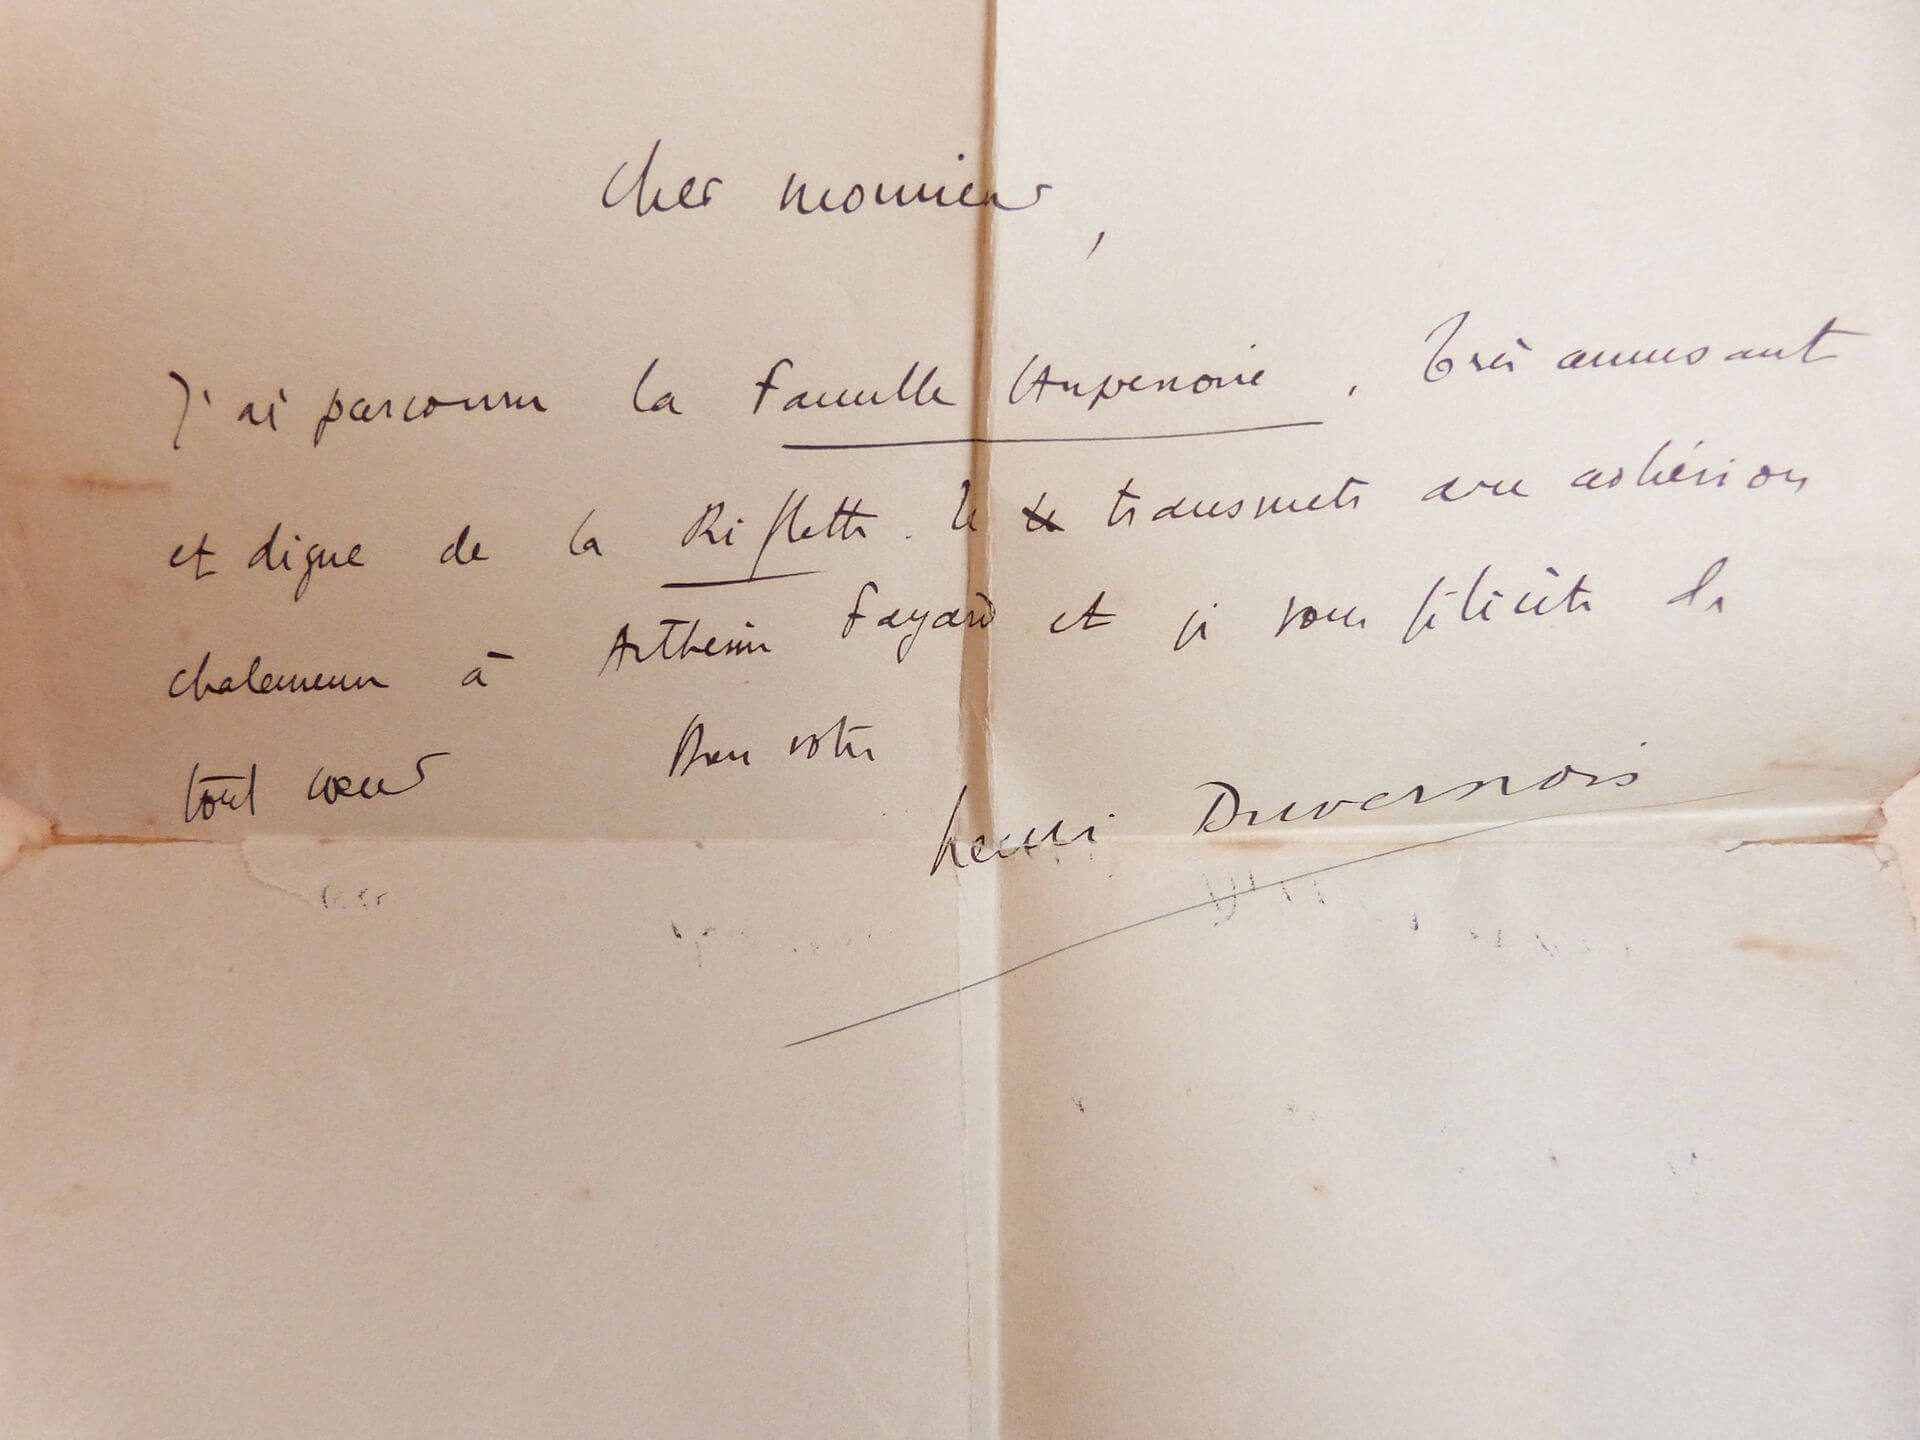 Cher monsieur,
J'ai parcouru la Famille Aupenoire, très amusant
et digne de la Riflette. Je le transmets avec adhésion
chaleureuse à Arthème Fayard et je vous félicite de
tout coeur Bien votre
Henri Duvernois